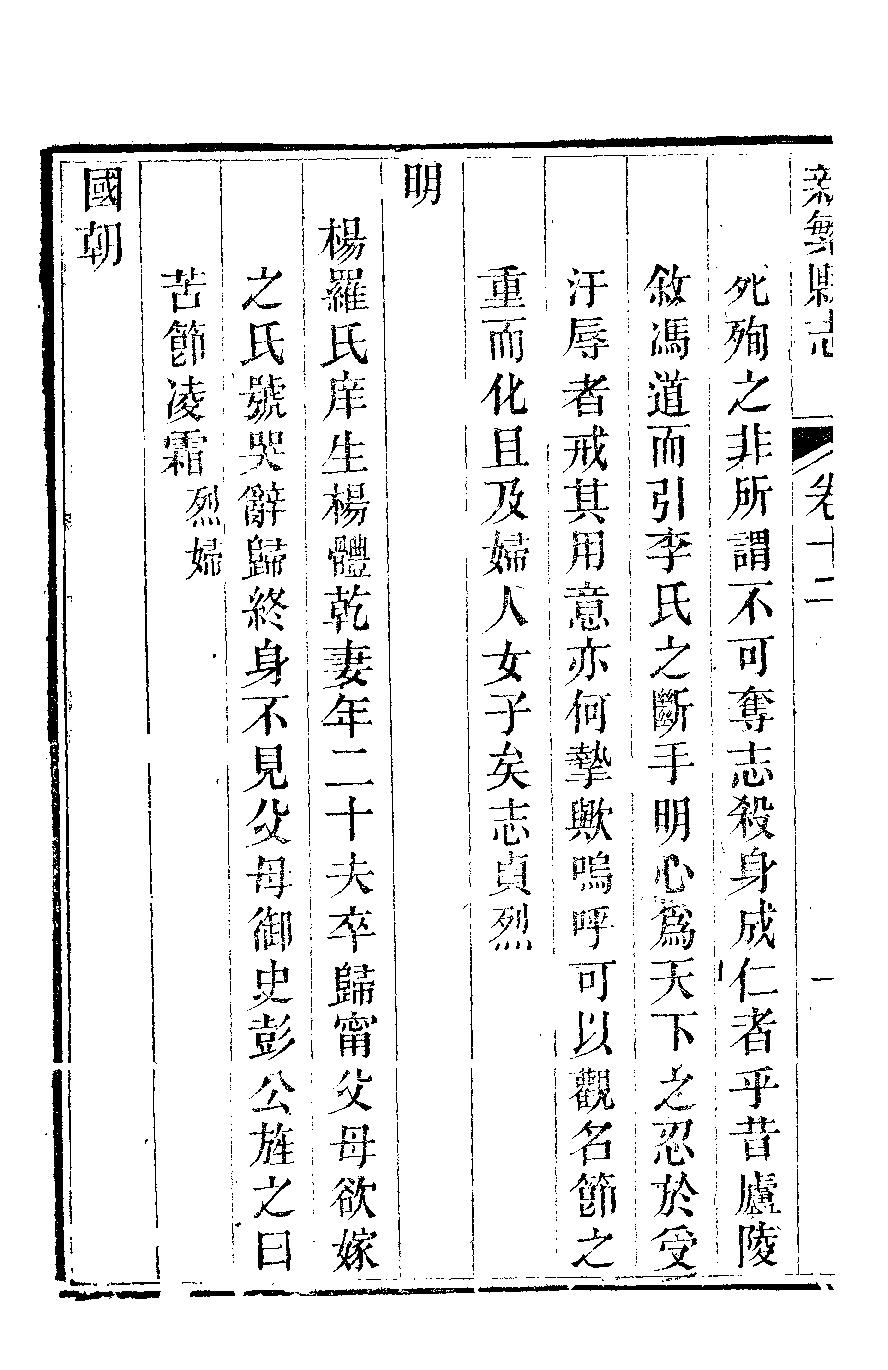 新繁縣志 卷十二 一
死殉之非所謂不可奪志殺身成仁者乎昔廬陵
敘馮道而引李氏之斷手明心爲天下之忍於受
汙辱者戒其用意亦何摯歟嗚呼可以觀名節之
重而化且及婦人女子矣志貞烈
明
楊羅氏庠生楊體乾妻年二十夫卒歸甯父母欲嫁
之氏號哭辭歸終身不見父母御史彭公旌之曰
苦節凌霜烈婦
國朝